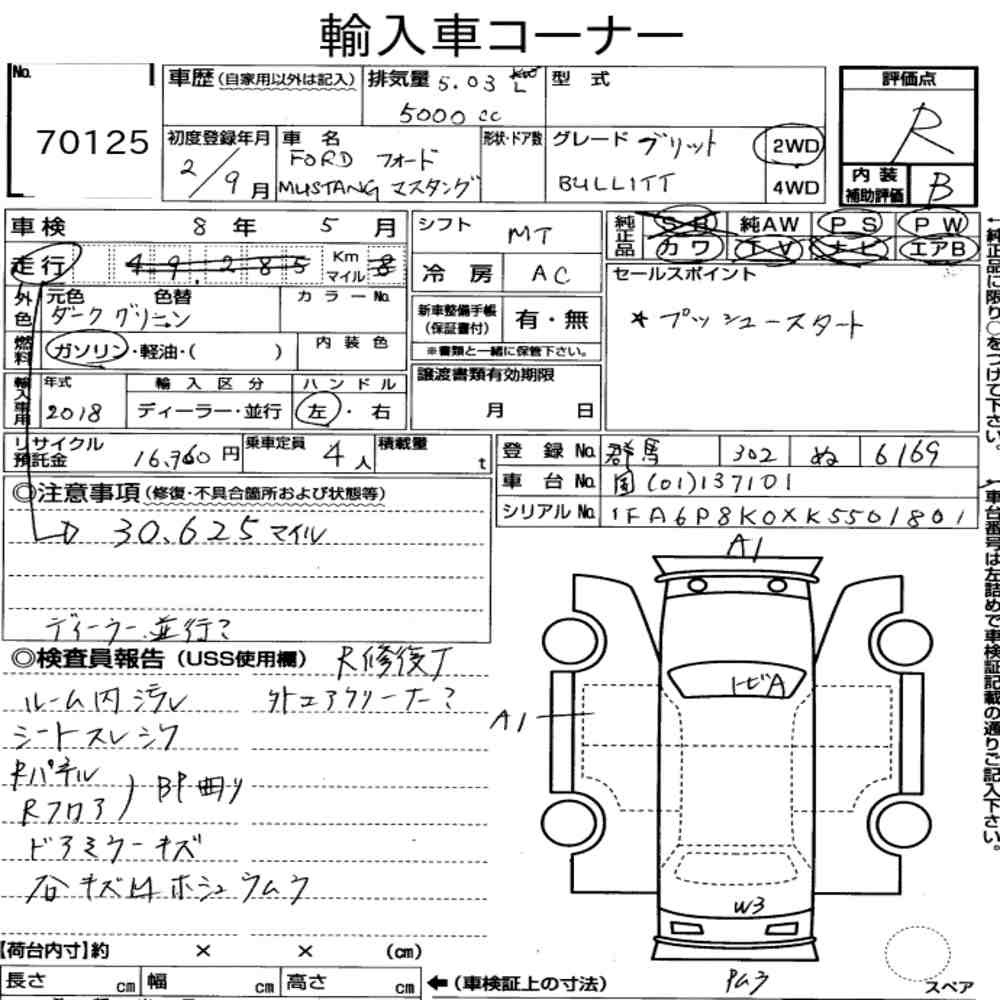 輸入車コーナー
No. 70125
車歴 (自家用以外は記入)
排気量 5.03 L
5000cc
型式
評価点 R
内装補助評価 B
初度登録年月 2/9月
車名 FORD フォード
MUSTANG マスタング
形状・ドア数
グレード ブリット
BULLITT
2WD
4WD
車検 8年 5月
走行 49,285 Km マイル
外色 元色 色替 カラーNo.
ダークグリーン
燃料 ガソリン・軽油・( )
内装色
輸入車用 年式 2018
輸入区分 ディーラー・並行
ハンドル 左・右
リサイクル預託金 16,760円
乗車定員 4人
積載量 t
シフト MT
冷房 AC
新車整備手帳 (保証書付) 有・無
※書類と一緒に保管下さい。
譲渡書類有効期限
月 日
純正品 SR 純AW PS PW
カワ TV ナビ エアB
セールスポイント
* プッシュースタート
←純正品に限り○をつけて下さい。
登録No. 群馬 302 ぬ 6169
車台No. 国(01)137101
シリアルNo. 1FA6P8K0XK5501801
←車台番号は左詰めで車検証記載の通りご記入下さい。
◎注意事項 (修復・不具合箇所および状態等)
30.625マイル
ディーラー.並行?
◎検査員報告 (USS使用欄) R修復T
ルーム内汚レ 外エアクリーナー?
シートスレシワ
Rパネル
Rフロア) BP曲り
ドアミラーキズ
各キズ凹ホシュウムラ
A1
トビA
A1
W3
PLウ
スペア
【荷台内寸】約 × × (cm)
長さ cm 幅 cm 高さ cm ←(車検証上の寸法)